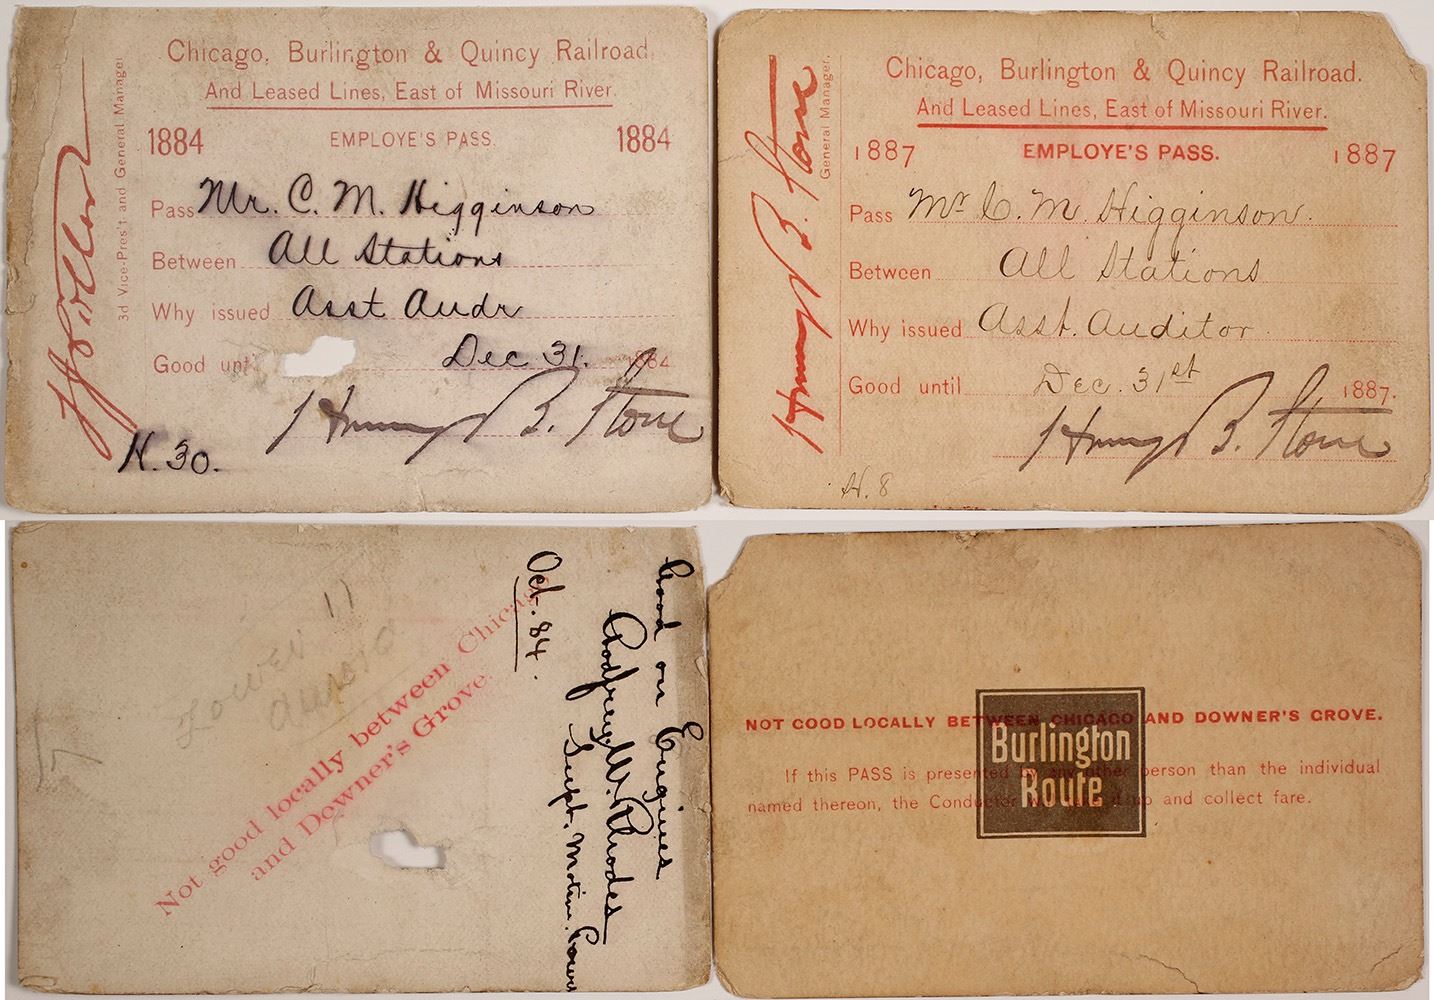 Chicago, Burlington & Quincy Railroad,
And Leased Lines, East of Missouri River.
1884 EMPLOYE'S PASS. 1884
Pass Mr. C. M. Higginson
Between All Stations
Why issued Asst Audr
Good unt Dec 31. 1884
Henry B. Stone
H. 30.
3d Vice-Pres't and General Manager
Chicago, Burlington & Quincy Railroad.
And Leased Lines, East of Missouri River.
1887 EMPLOYE'S PASS. 1887
Pass Mr C. M. Higginson.
Between All Stations
Why issued Asst. Auditor
Good until Dec. 31st 1887.
Henry B. Stone
H. 8
Henry B. Stone
General Manager.
11
Not good locally between Chicago
and Downer's Grove.
Good on Engines
Godfrey W. Rhodes
Supt. Motive Power
Oct. 84.
NOT GOOD LOCALLY BETWEEN CHICAGO AND DOWNER'S GROVE.
If this PASS is presented by any other person than the individual
named thereon, the Conductor will take it up and collect fare.
Burlington
Route